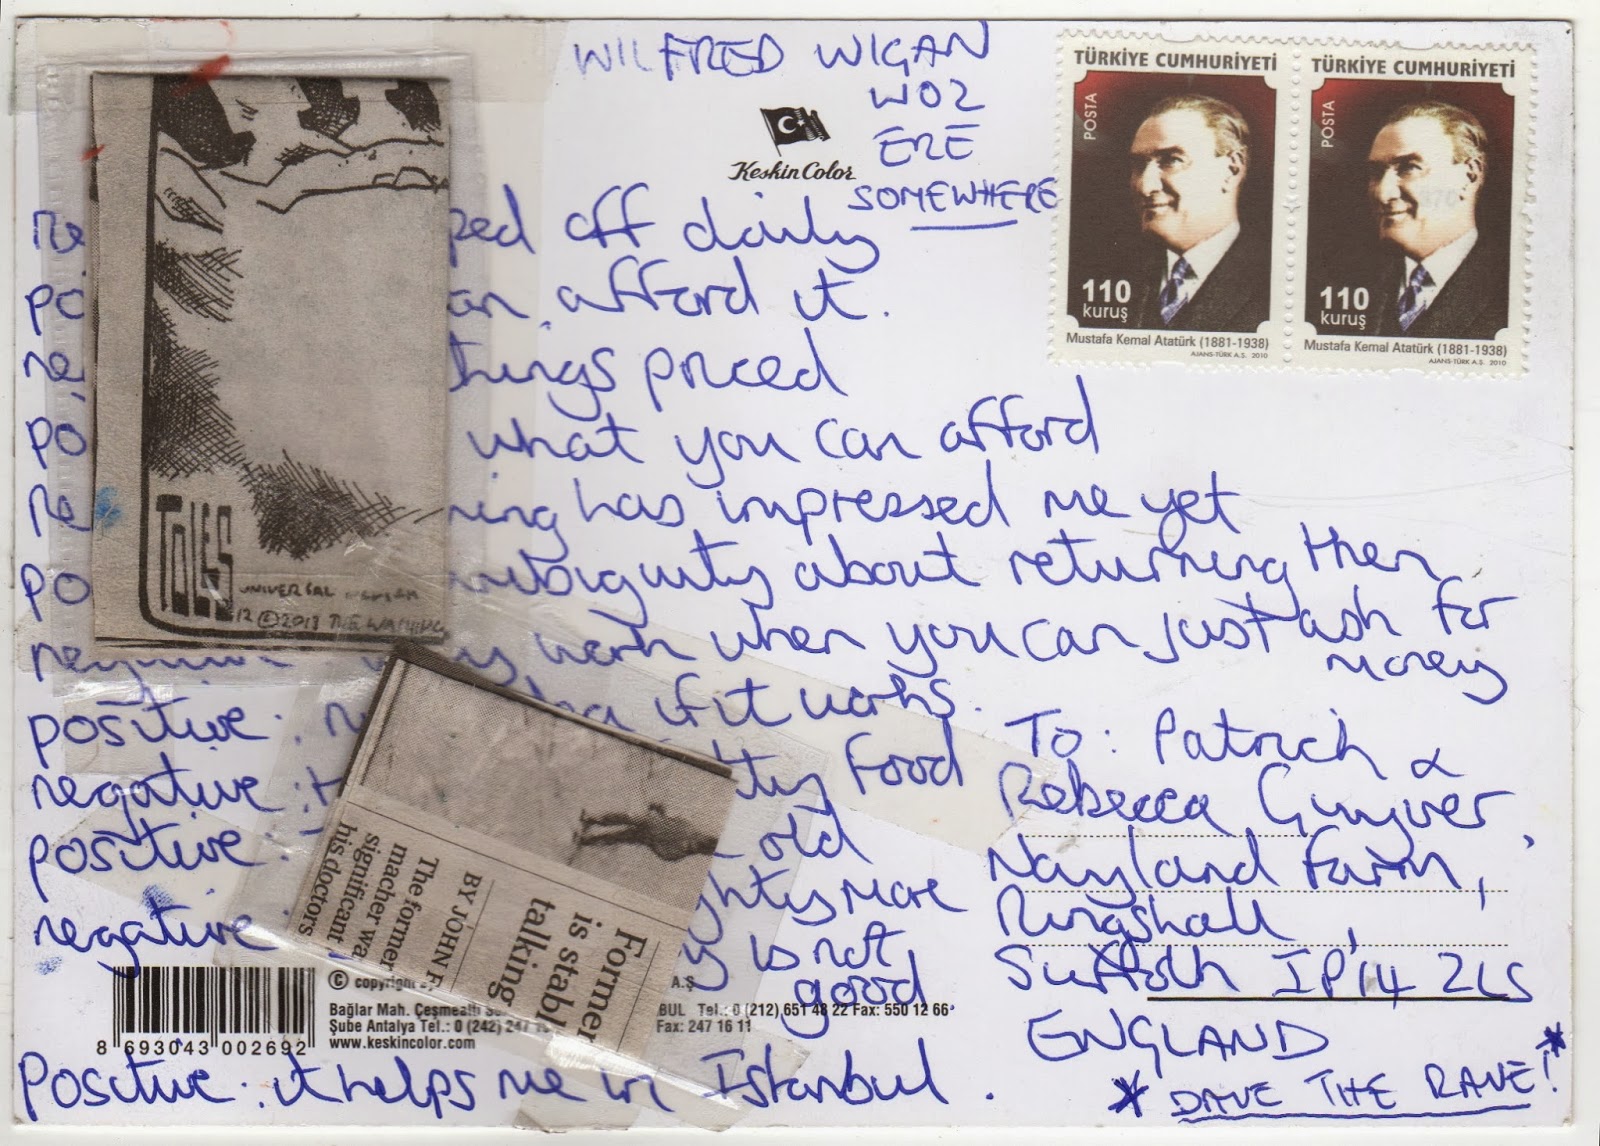 WILFRED WIGAN
WO2
ERE
SOMEWHERE
Keskin Color
TÜRKİYE CUMHURİYETİ
POSTA
110
kuruş
Mustafa Kemal Atatürk (1881-1938)
AJANS-TÜRK A.Ş. 2010
TÜRKİYE CUMHURİYETİ
POSTA
110
kuruş
Mustafa Kemal Atatürk (1881-1938)
AJANS-TÜRK A.Ş. 2010
ne ped off daily
po afford it.
ne things priced
po what you can afford
ne ning has impressed me yet
po ambiguity about returning them
negative: work when you can just ask for
money
positive: if it works.
negative: food
positive: old
negative: ghty more
is not
good
Positive: it helps me in Istanbul.
TOLES
UNIVERSAL
12 © 2013 THE WASHING
Former
is stabl
talking
BY JOHN F
The former
macher wa
significant
his doctors
To: Patrick &
Rebecca Guyver,
Nayland Farm,
Ringshall,
Suffolk IP14 2LS
ENGLAND
* DAVE THE RAVE! *
© copyright
A.Ş
Bağlar Mah. Çeşmealtı BUL Tel.: 0 (212) 651 48 22 Fax: 550 12 66
Şube Antalya Tel.: 0 (242) 247 Fax: 247 16 11
www.keskincolor.com
8 693043 002692